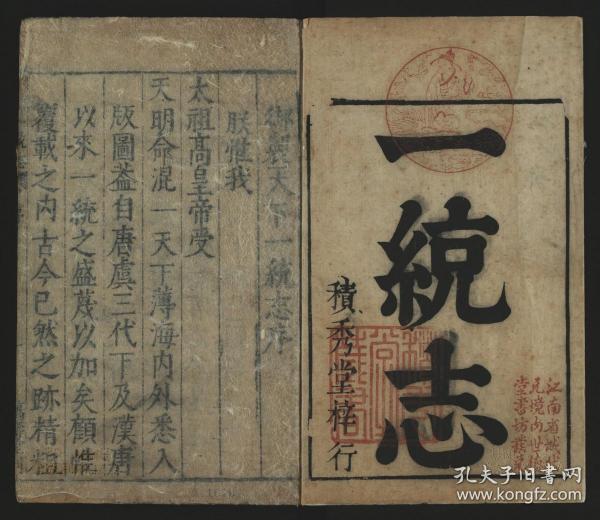 一統志
積秀堂梓行
江南省城
堂書坊發
御製天下一統志序
朕惟我
太祖高皇帝受
天明命混一天下薄海內外悉入
版圖蓋自唐虞三代下及漢唐
以來一統之盛蔑以加矣顧惟
覆載之內古今已然之跡精粗
孔夫子旧书网
www.kongfz.com